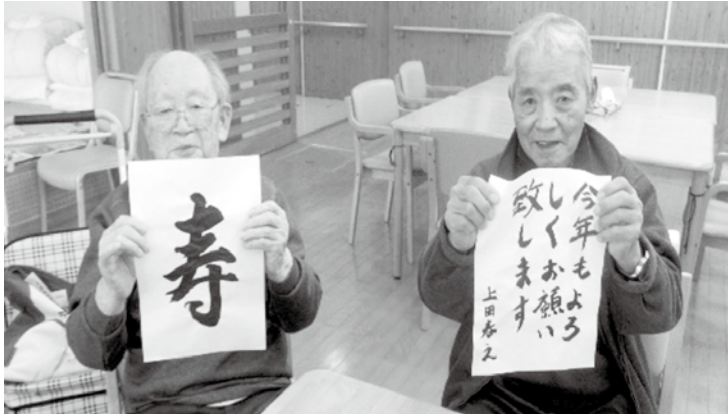 寿
今年もよろ
しくお願い
致します
上田春之